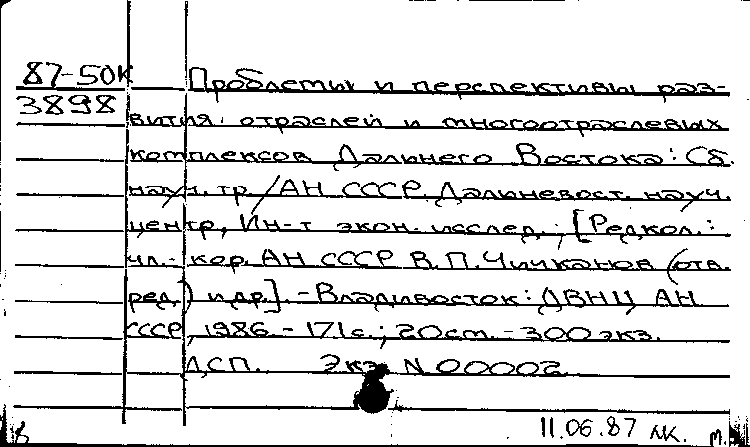 87-50К Проблемы и перспективы раз-
3898
вития отраслей и многоотраслевых
комплексов Дальнего Востока: Сб.
науч. тр./АН СССР, Дальневост. науч.
центр, Ин-т экон. исслед.; [Редкол.:
чл.-кор. АН СССР В.П.Чичканов (отв.
ред.) и др.].-Владивосток: ДВНЦ АН
СССР, 1986.-171с.; 20см.-300экз.
ДСП. Экз. N 00002
11.06.87 МК.